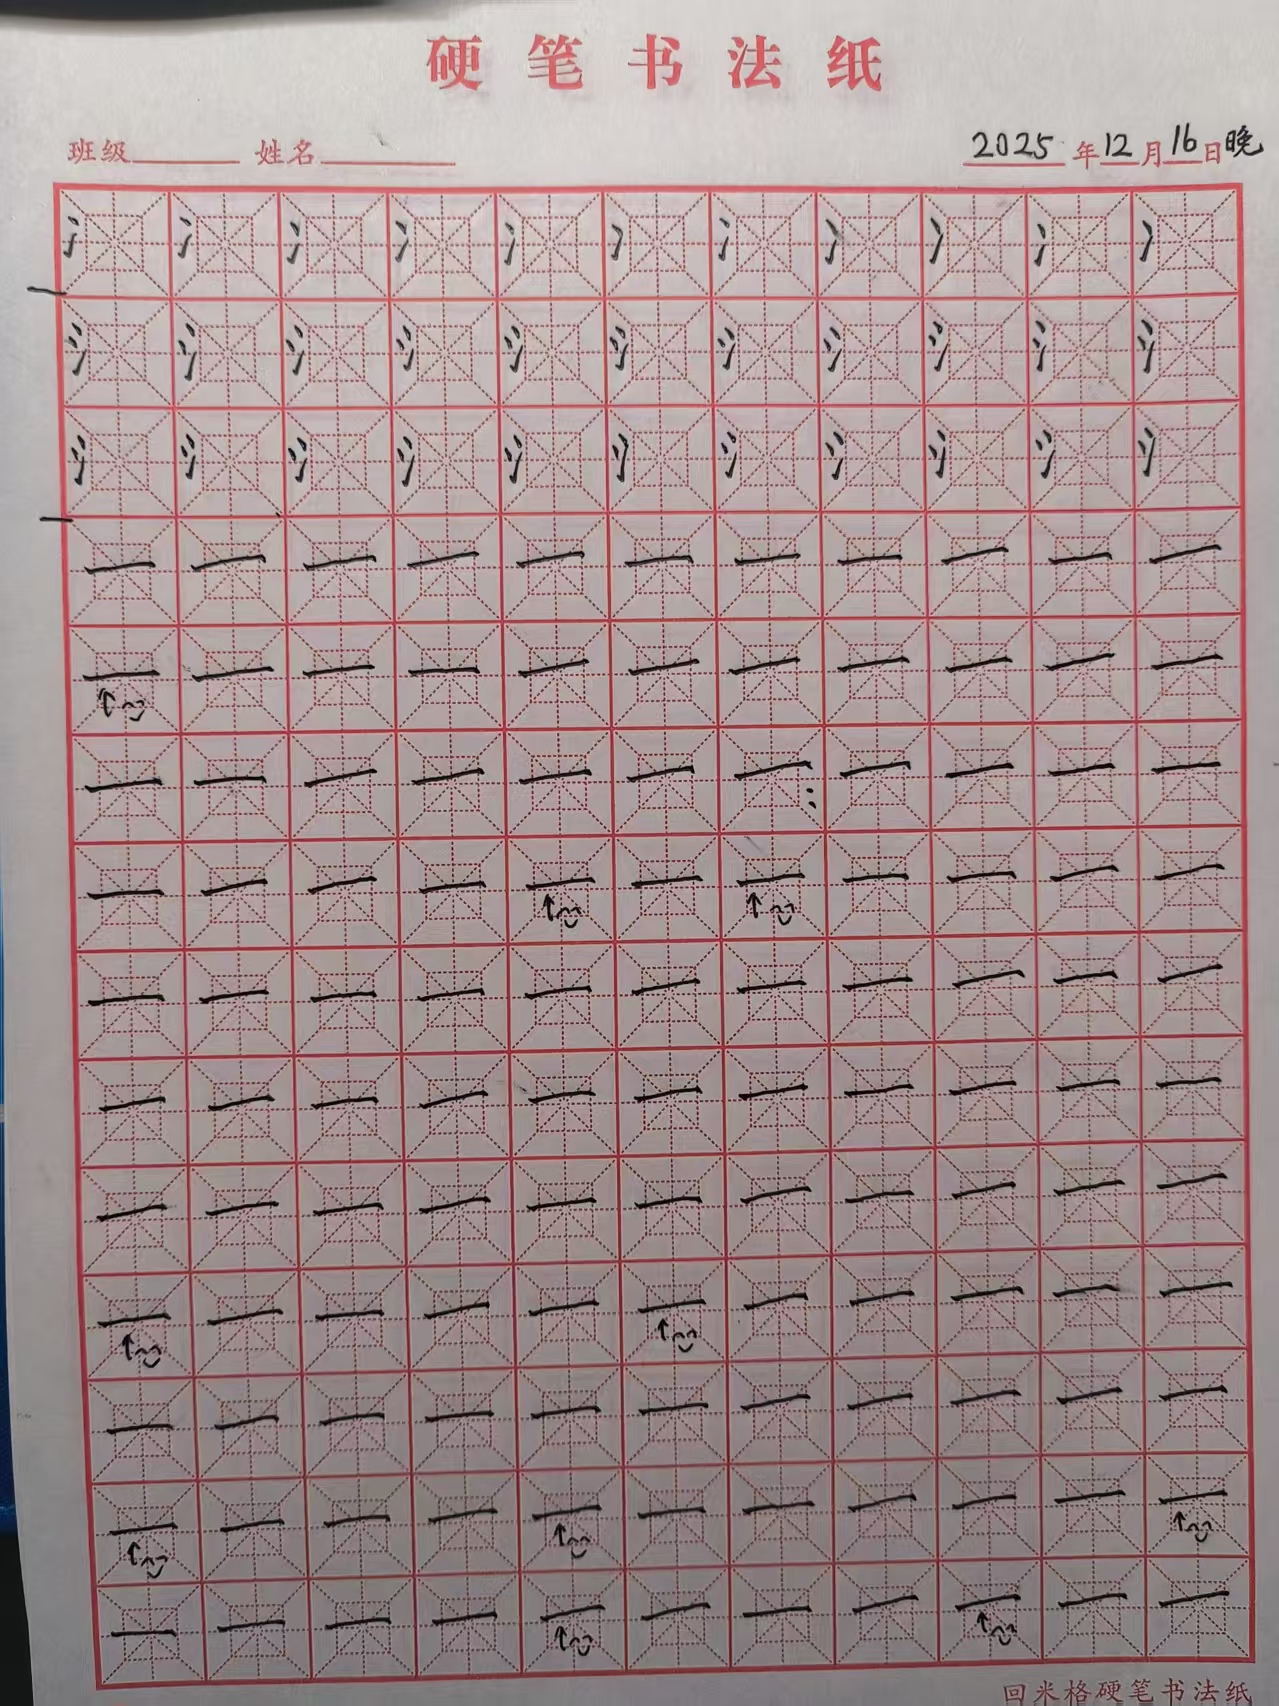 硬笔书法纸
班级 姓名 2025年12月16日晚
一 一 一 一 一 一 一 一 一 一 一
一 一 一 一 一 一 一 一 一 一 一
一 一 一 一 一 一 一 一 一 一 一
一 一 一 一 一 一 一 一 一 一 一
一 一 一 一 一 一 一 一 一 一 一
一 一 一 一 一 一 一 一 一 一 一
一 一 一 一 一 一 一 一 一 一 一
一 一 一 一 一 一 一 一 一 一 一
一 一 一 一 一 一 一 一 一 一 一
一 一 一 一 一 一 一 一 一 一 一
一 一 一 一 一 一 一 一 一 一 一
回米格硬笔书法纸